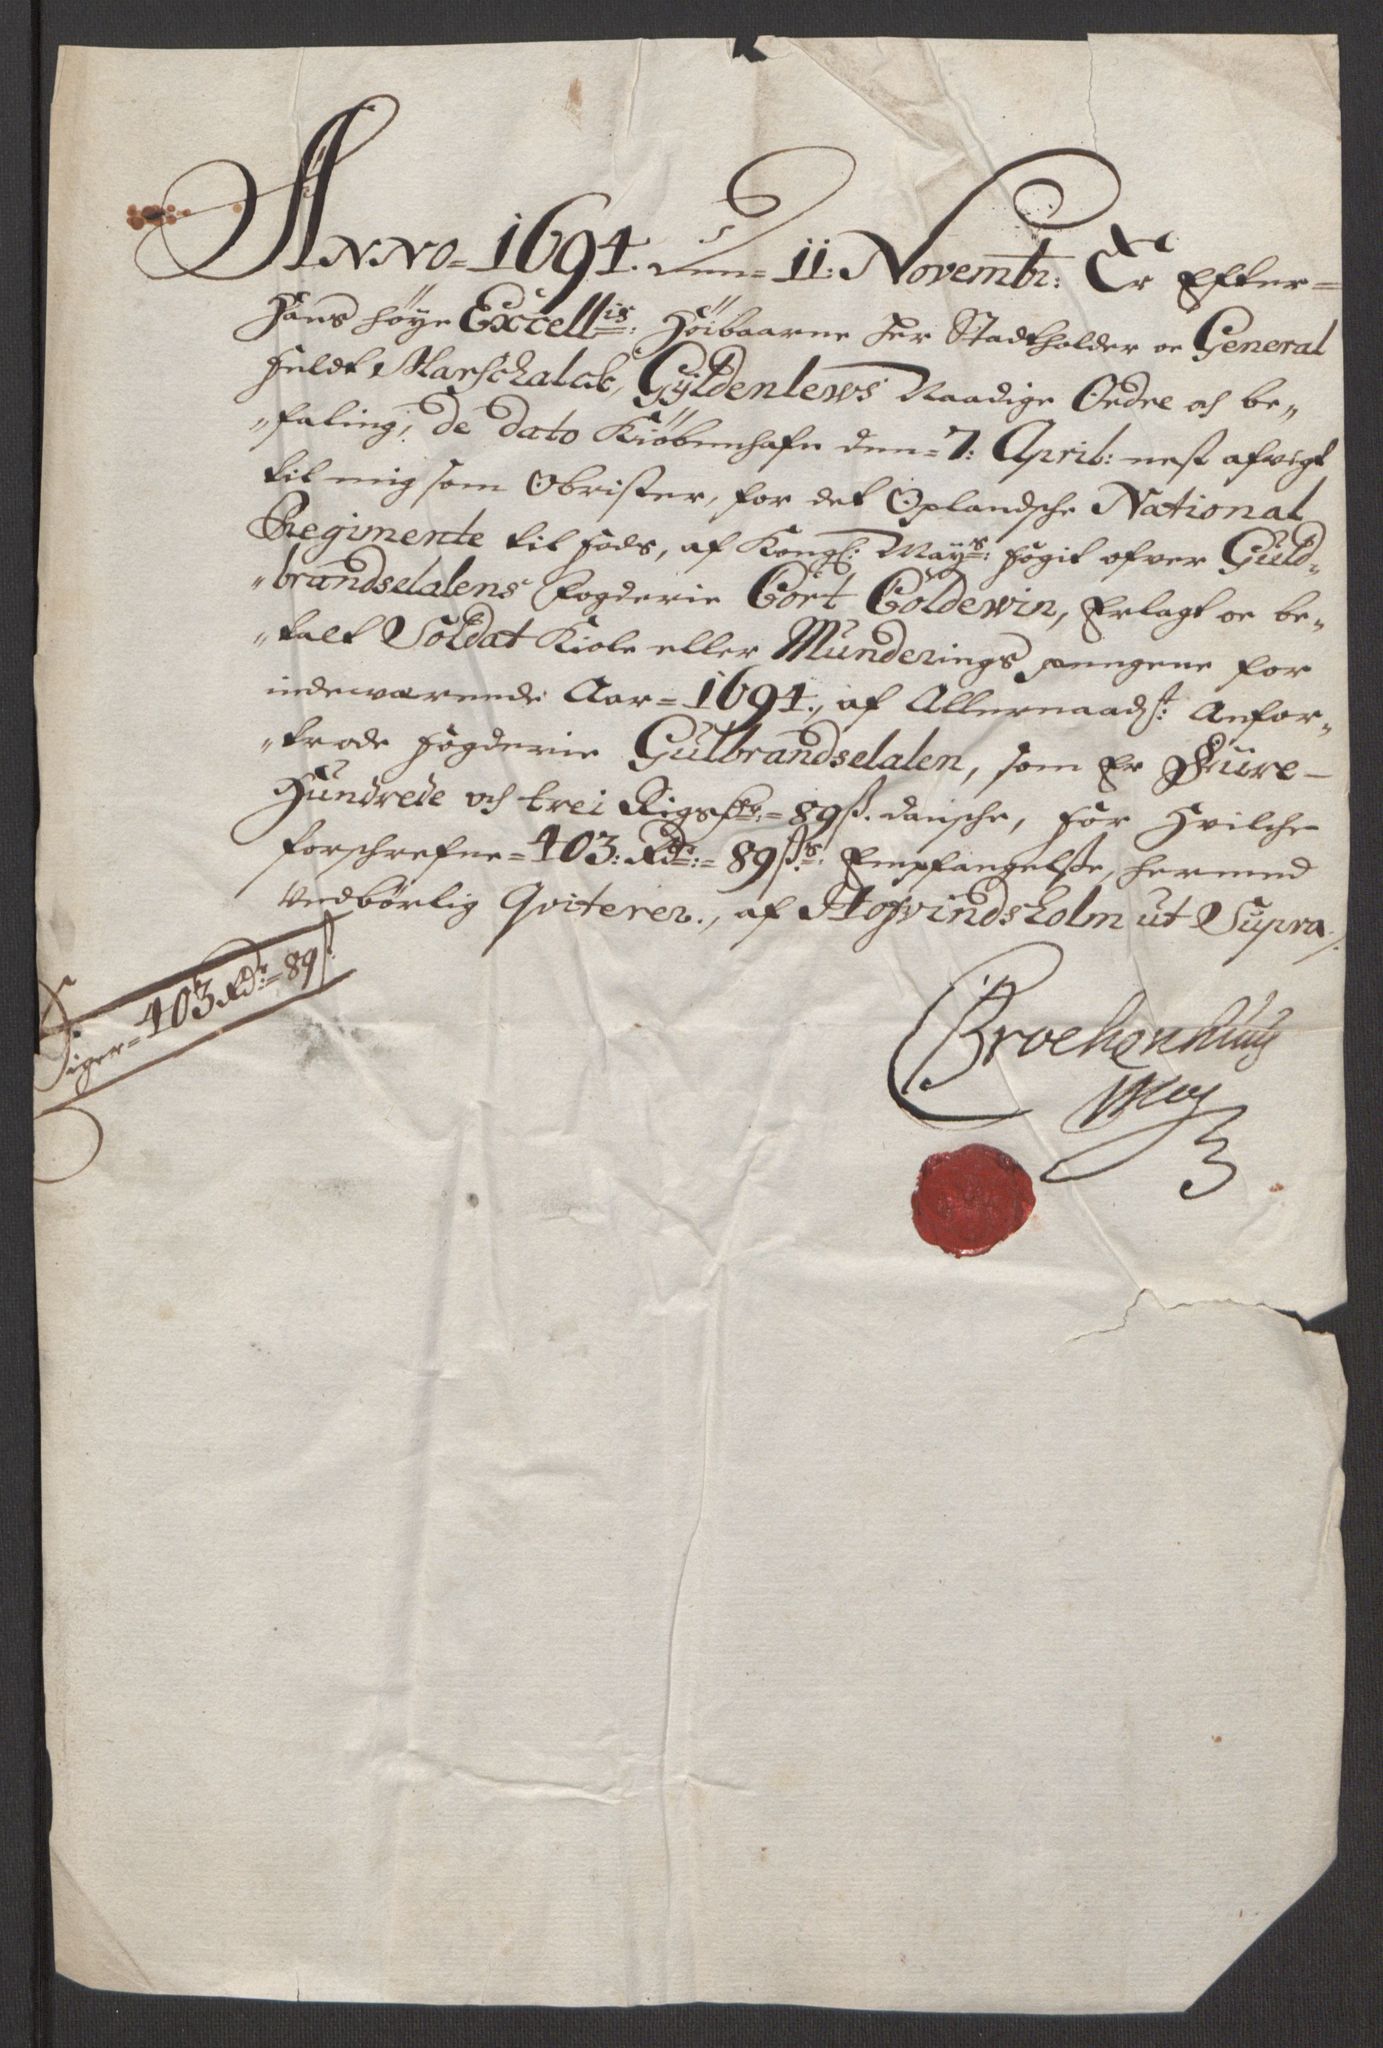 Anno = 1694. den = 11: Novembr: Er Efter=
Hans høye Excellis: Höibaarne Her Stadtholder oc General
Feldt Marschalck, Gÿldenlews Naadige Ordre och be„
„faling, de dato Kiöbenhafn den = 7: April: nest afvigt
til mig som Obrister, for det Oplandsche National
Regimente til fods, af Kongl: Mayts: fogit ofver Guld„
„brandsdalens fogderie Cort Coldewin, Erlagt oc be„
„talt Soldat Kiole eller Munderings pengene for
indewærende Aar = 1694., af Allernaadst: Anfor„
„trode fogderie Gulbrandsdalen, som Er Fiure-
Hundrede och trei Rigsdlr: = 89 ß. dansche, for Hvilche
forschrefne = 403: Rdr: = 89 ßs: Empfangelsse, hermed
vedbørlig Qviterer., af Hofvindsholm ut Supra /.
Siger = 403 Rdr: = 89 ß.
Brockenhuus